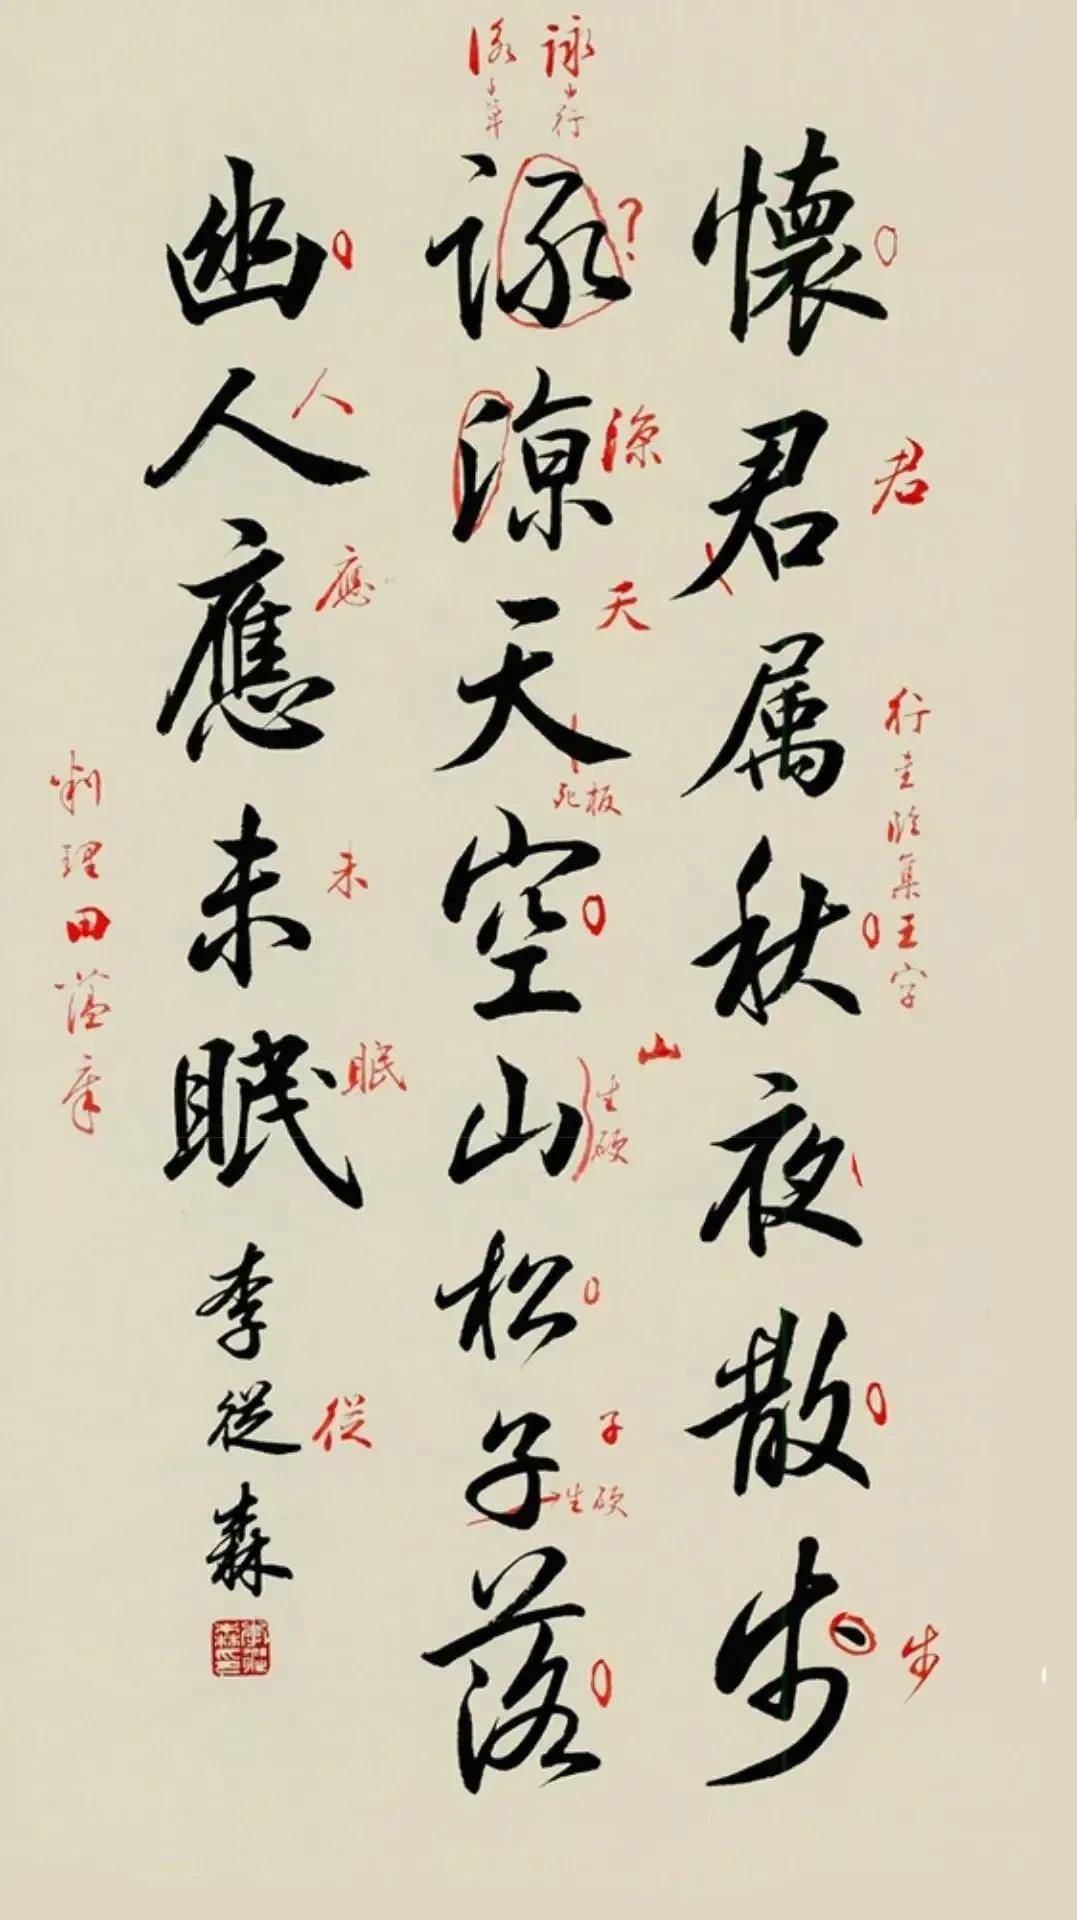 懷君属秋夜散步
詠涼天空山松子落
幽人應未眠
李從森
詠
行
草
?
君
涼
天
死板
行
臨集王字
山
生硬
步
子
生硬
人
應
未
眠
從
理
田蘊章